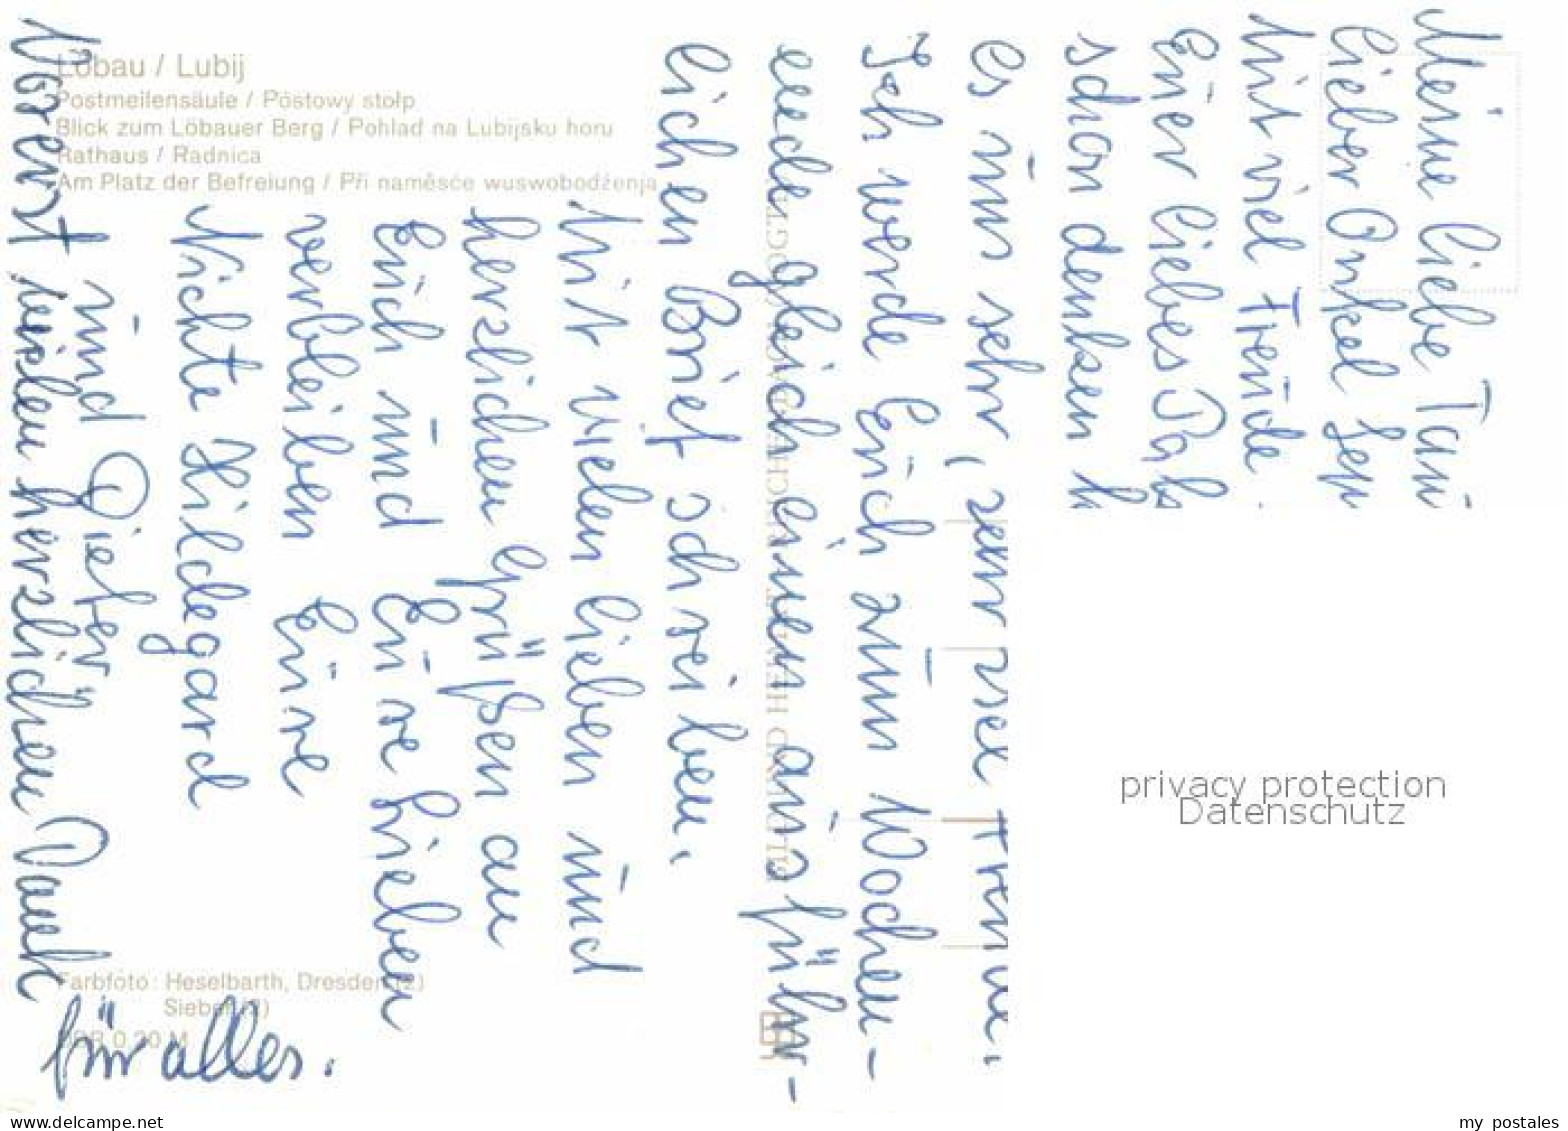 Löbau / Lubij
Postmeilensäule / Póstowy stołp
Blick zum Löbauer Berg / Pohlad na Lubijsku horu
Rathaus / Radnica
Am Platz der Befreiung / Při naměsće wuswobodźenja
Meine liebe Tan
lieber Onkel Sep
Mit viel Freude
Euer liebes
schon denken
es nun sehr,
Ich werde Euch zum Wochen-
ende gleich einen ausführ-
lichen Brief schreiben.
Mit vielen lieben und
herzlichen Grüßen an
Euch und Eure Lieben
verbleiben Eure
Nichte Hildegard
und Dieter
Vorerst vielen herzlichen Dank
für alles.
Farbfoto: Heselbarth, Dresden (2)
Sieber (2)
0,20 M
privacy protection
Datenschutz
oldthing.net
my postales